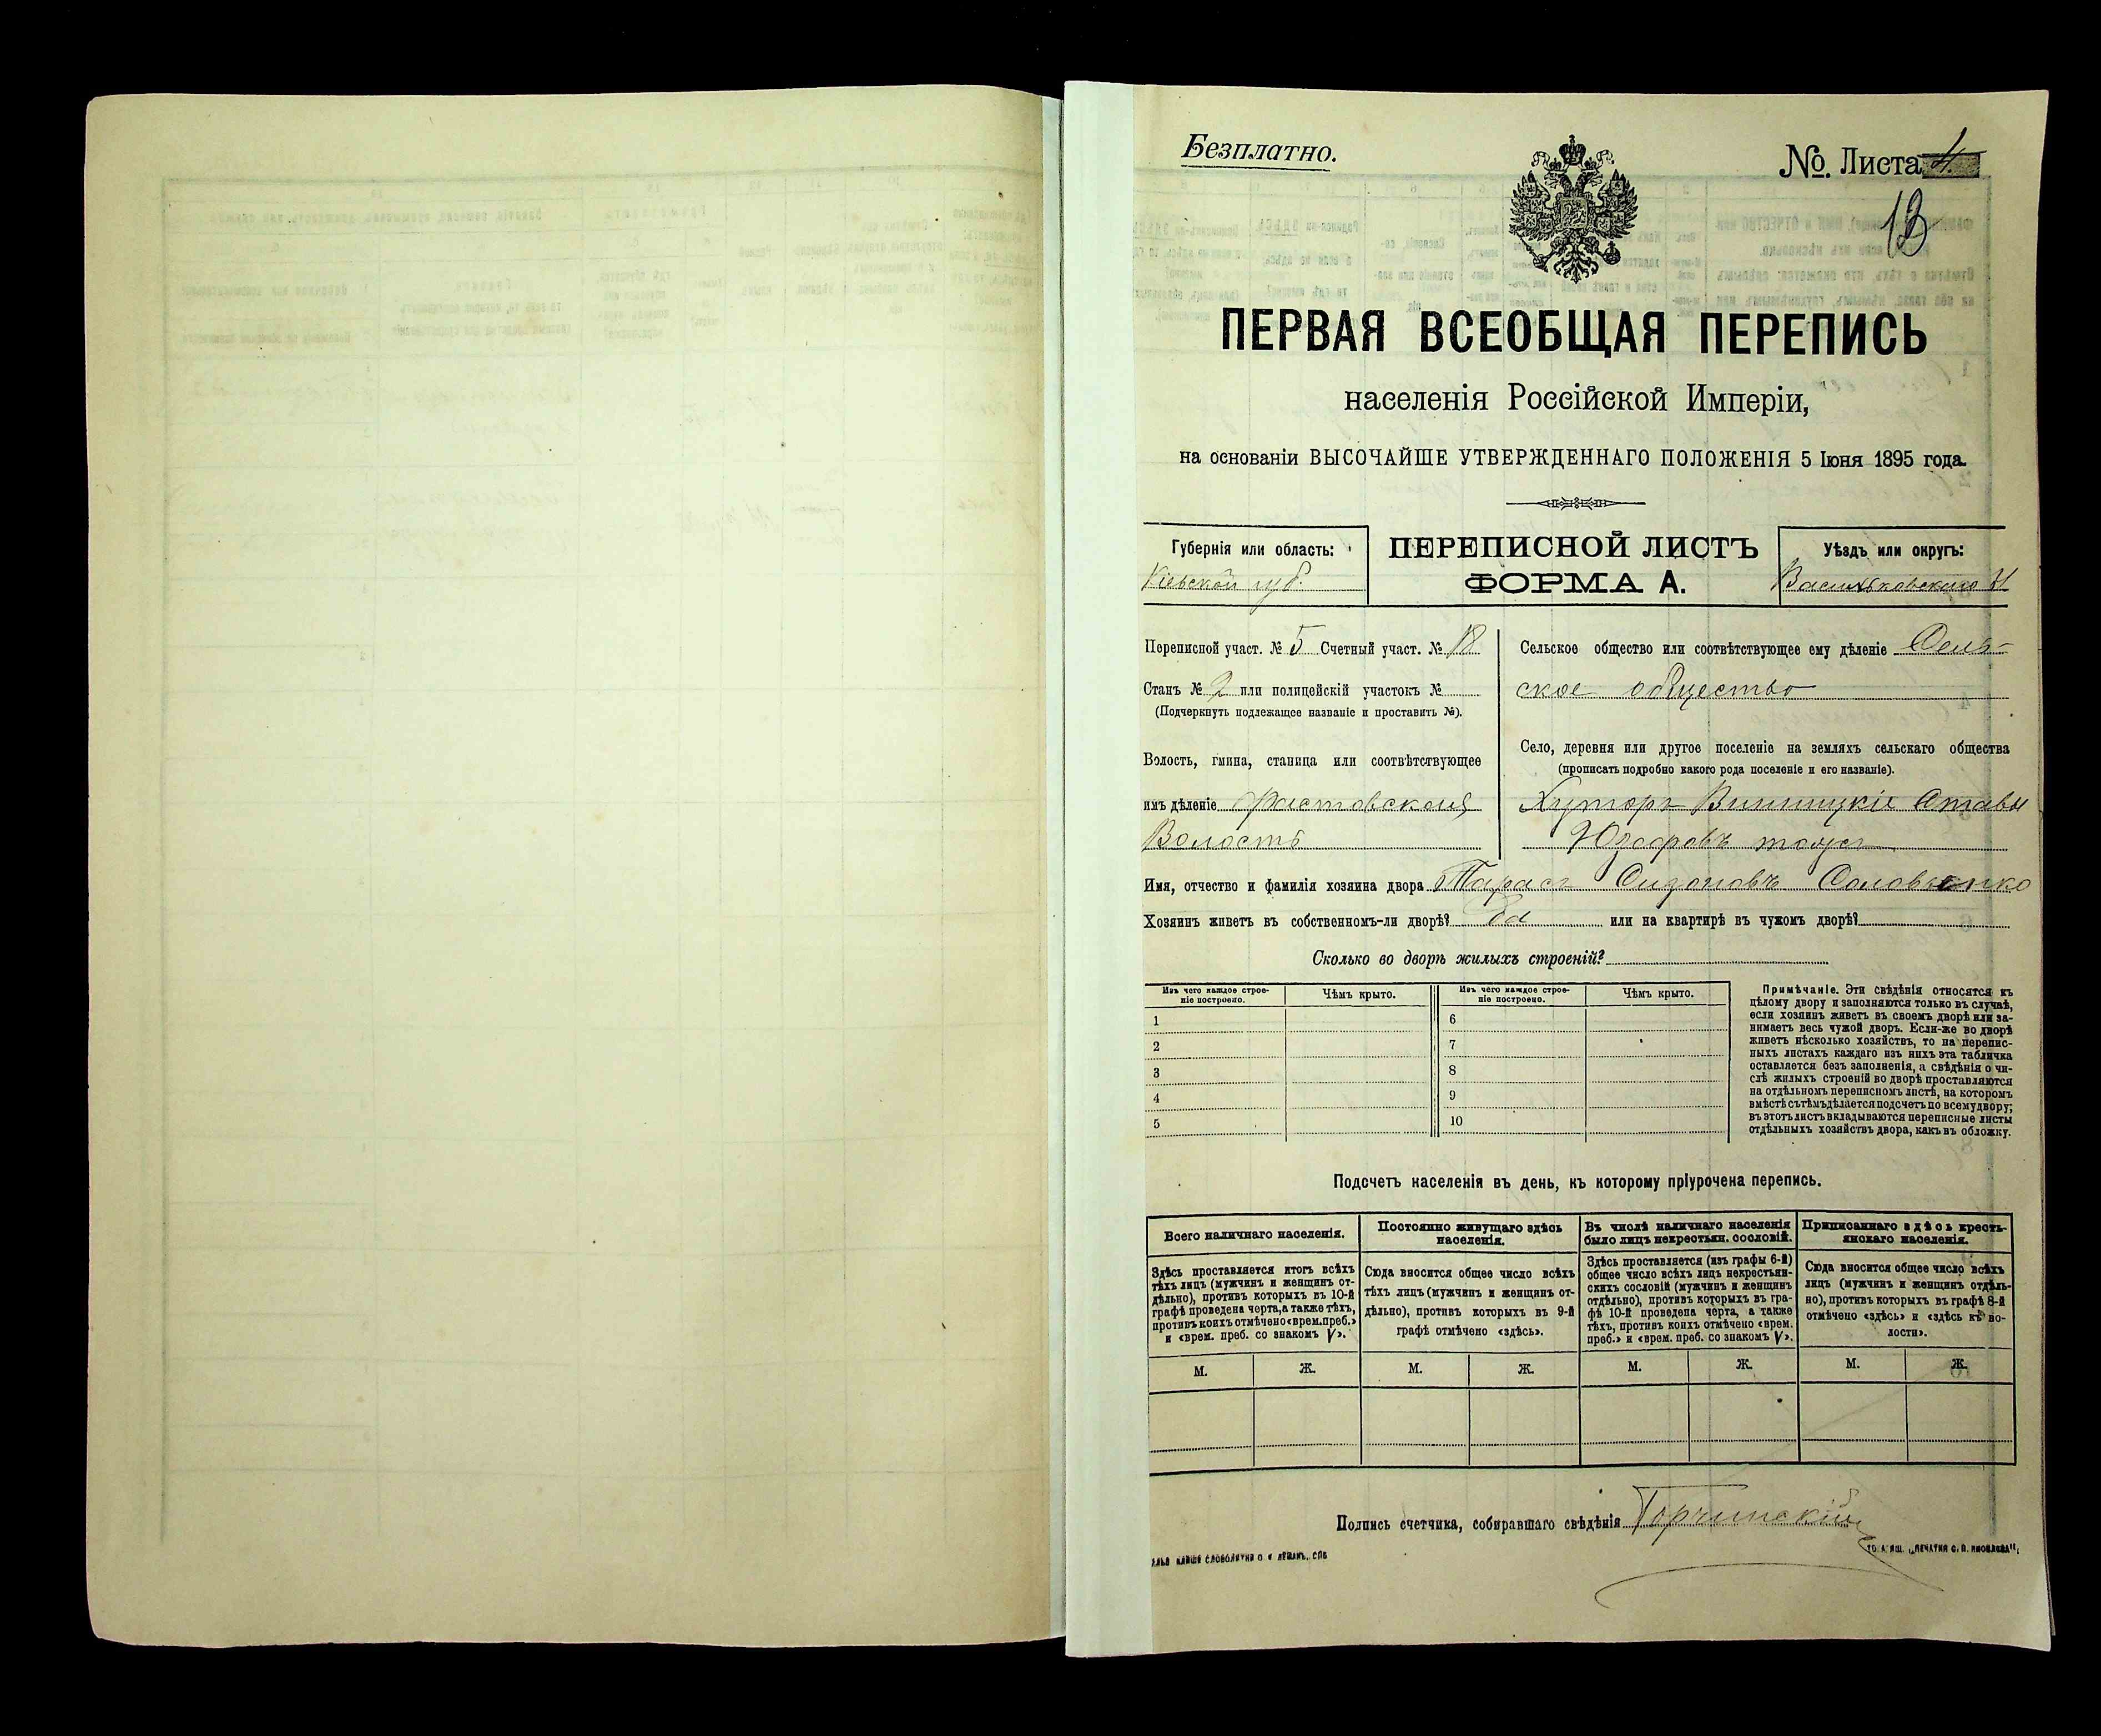 Безплатно.
№. Листа 4.
13
ПЕРВАЯ ВСЕОБЩАЯ ПЕРЕПИСЬ
населенія Россійской Имперіи,
на основаніи ВЫСОЧАЙШЕ УТВЕРЖДЕННАГО ПОЛОЖЕНІЯ 5 Іюня 1895 года.
Губернія или область:
Кіевской губ.
ПЕРЕПИСНОЙ ЛИСТЪ
ФОРМА А.
Уѣздъ или округъ:
Васильковскаго
Переписной участ. № 5 Счетный участ. № 18
Станъ № 2 или полицейскій участокъ №
(Подчеркнуть подлежащее названіе и проставить №).
Волость, гмина, станица или соотвѣтствующее
имъ дѣленіе Фастовская
Волость
Сельское общество или соотвѣтствующее ему дѣленіе Сель-
ское общество
Село, деревня или другое поселеніе на земляхъ сельскаго общества
(прописать подробно какого рода поселеніе и его названіе).
Хуторъ Винницкіе Ставы
Имя, отчество и фамилія хозяина двора Тарасъ Сидоровъ Соловьенко
Хозяинъ живетъ въ собственномъ-ли дворѣ? Да или на квартирѣ въ чужомъ дворѣ?
Сколько во дворѣ жилыхъ строеній?
Изъ чего каждое строе-
ніе построено.
Чѣмъ крыто.
Изъ чего каждое строе-
ніе построено.
Чѣмъ крыто.
1
2
3
4
5
6
7
8
9
10
Примѣчаніе. Эти свѣдѣнія относятся къ
цѣлому двору и заполняются только въ случаѣ,
если хозяинъ живетъ въ своемъ дворѣ или за-
нимаетъ весь чужой дворъ. Если-же во дворѣ
живетъ нѣсколько хозяйствъ, то на перепис-
ныхъ листахъ каждаго изъ нихъ эта табличка
оставляется безъ заполненія, а свѣдѣнія о чи-
слѣ жилыхъ строеній во дворѣ проставляются
на отдѣльномъ переписномъ листѣ, на которомъ
вмѣстѣ съ тѣмъ дѣлается подсчетъ по всему двору;
въ этотъ листъ вкладываются переписные листы
отдѣльныхъ хозяйствъ двора, какъ въ обложку.
Подсчетъ населенія въ день, къ которому пріурочена перепись.
Всего наличнаго населенія.
Постоянно живущаго здѣсь
населенія.
Въ числѣ наличнаго населенія
было лицъ некрестьян. сословій.
Приписаннаго здѣсь кресть-
янскаго населенія.
Здѣсь проставляется итогъ всѣхъ
тѣхъ лицъ (мужчинъ и женщинъ от-
дѣльно), противъ которыхъ въ 10-й
графѣ проведена черта, а также тѣхъ,
противъ коихъ отмѣчено «врем. преб.»
и «врем. преб. со знакомъ V».
Сюда вносится общее число всѣхъ
тѣхъ лицъ (мужчинъ и женщинъ от-
дѣльно), противъ которыхъ въ 9-й
графѣ отмѣчено «здѣсь».
Здѣсь проставляется (изъ графы 6-й)
общее число всѣхъ лицъ некрестьян-
скихъ сословій (мужчинъ и женщинъ
отдѣльно), противъ которыхъ въ гра-
фѣ 10-й проведена черта, а также
тѣхъ, противъ коихъ отмѣчено «врем.
преб.» и «врем. преб. со знакомъ V».
Сюда вносится общее число всѣхъ
лицъ (мужчинъ и женщинъ отдѣль-
но), противъ которыхъ въ графѣ 8-й
отмѣчено «здѣсь» и «здѣсь къ во-
лости».
М. Ж. М. Ж. М. Ж. М. Ж.
Подпись счетчика, собиравшаго свѣдѣнія Горчинскій